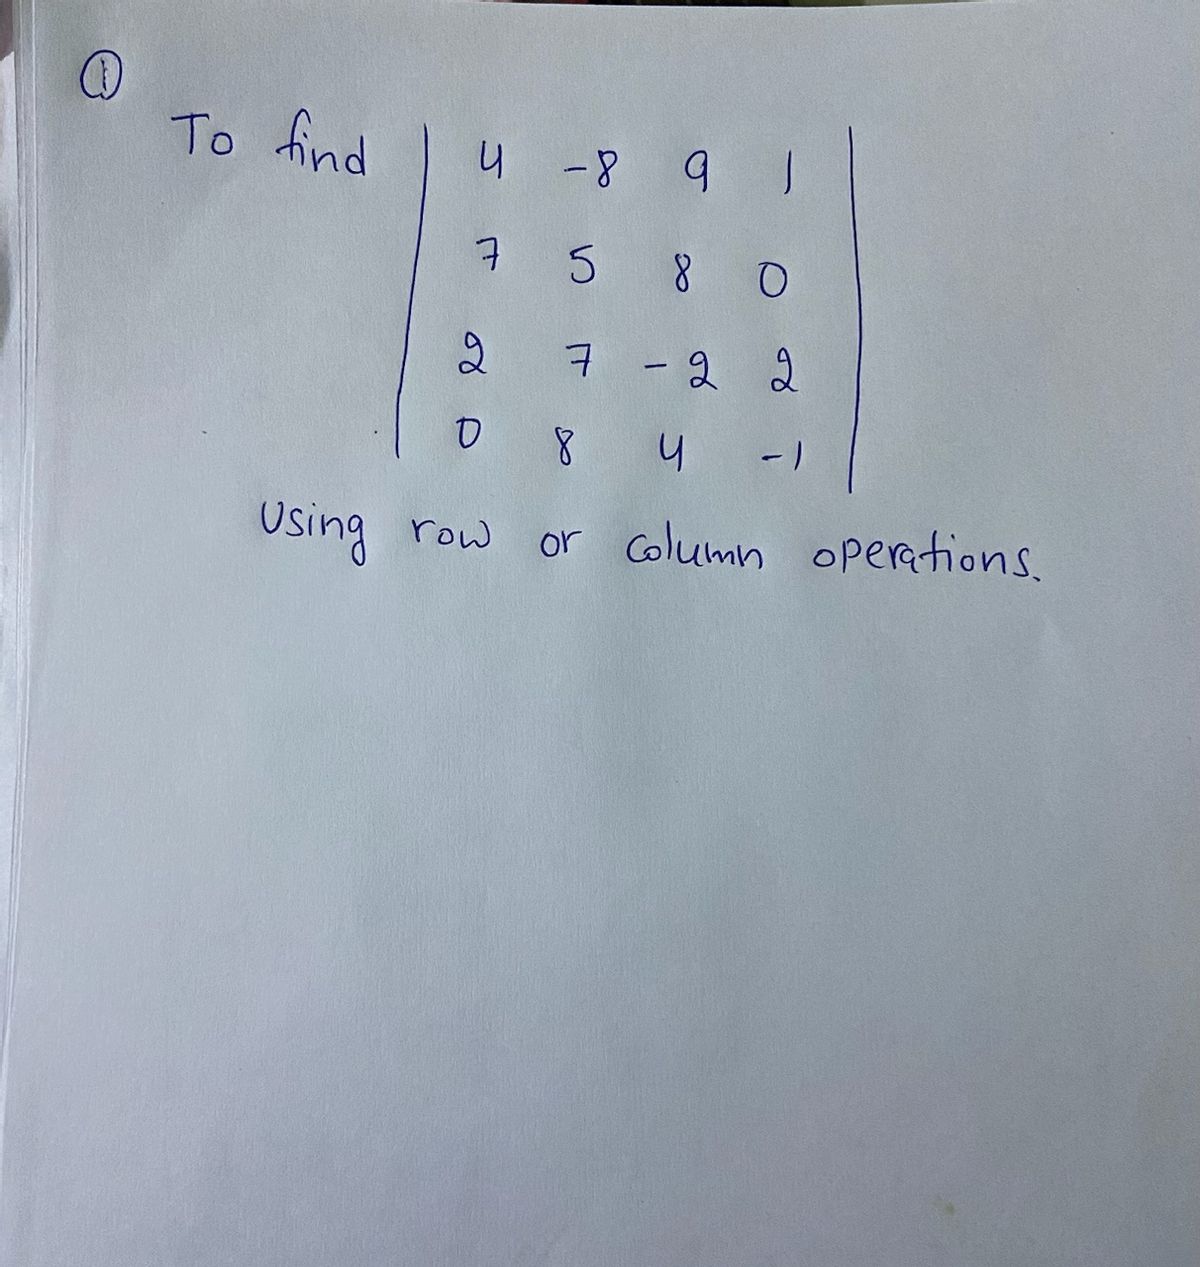 ①
To find | 4 -8 9 1 |
7 5 8 0
2 7 -2 2
0 8 4 -1
Using row or column operations.